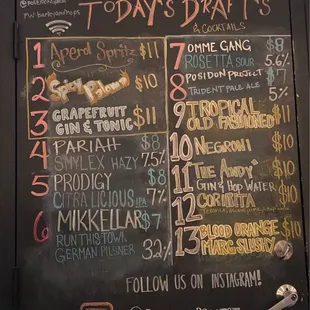 TODAY'S DRAFTS
& COCKTAILS
1 Aperol Spritz $11
2 Spicy Paloma $10
3 GRAPEFRUIT
GIN & TONIC $11
4 PARIAH $8
SMYLEX HAZY 7.5%
5 PRODIGY $8
CITRALICIOUS IPA 7%
6 MIKKELLAR $7
RUN THIS TOWN
GERMAN PILSNER 3.2%
7 OMMEGANG $8
ROSETTA SOUR 5.6%
8 POSIDON PROJECT $7
TRIDENT PALE ALE 5%
9 TROPICAL
OLD FASHIONED $11
10 NEGRONI $10
11 THE ANDY
GIN & HOP WATER $10
12 CORIRITA $10
13 BLOOD ORANGE
MARG SLUSHY $10
FOLLOW US ON INSTAGRAM!